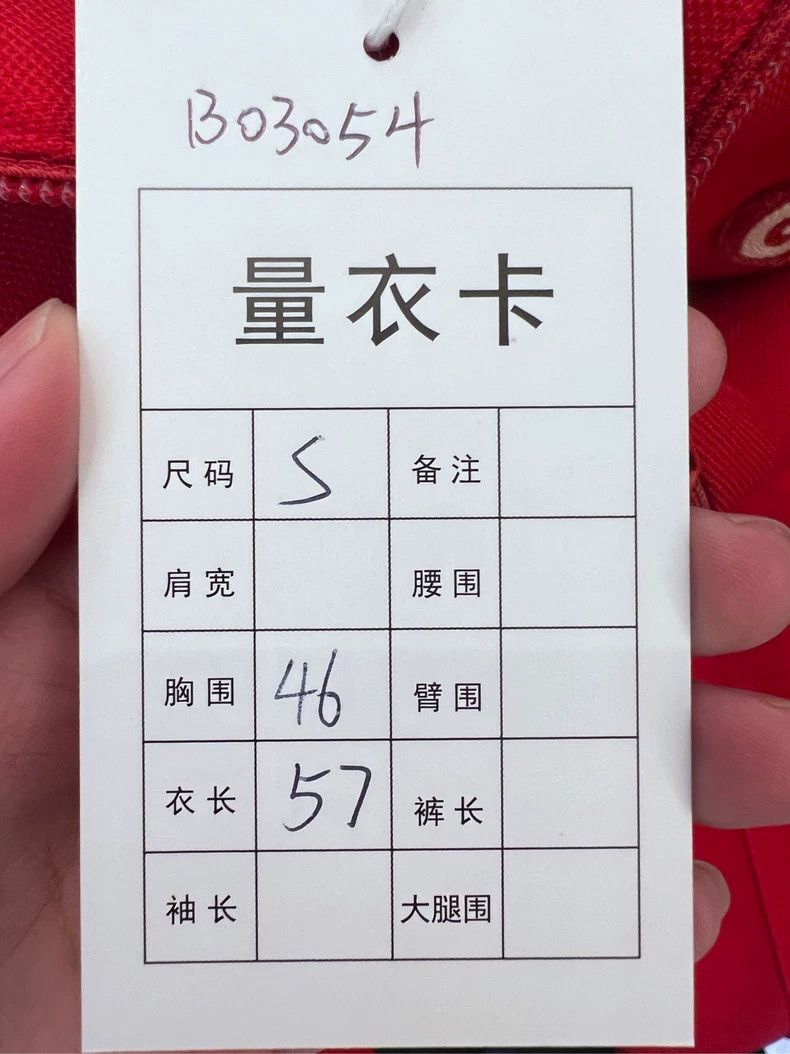 B03054
量衣卡
尺码 S 备注
肩宽 腰围
胸围 46 臂围
衣长 57 裤长
袖长 大腿围